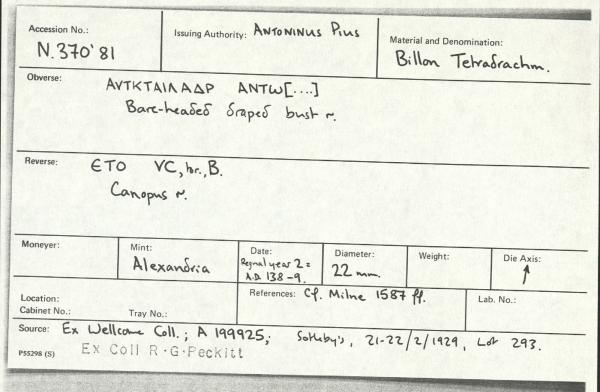 Accession No.:
N.370'81
Issuing Authority: ANTONINUS PIUS
Material and Denomination:
Billon Tetradrachm.
Obverse:
ΑVΤΚΤΑΙΛΑΔΡ ΑΝΤω[....]
Bare-headed draped bust r.
Reverse:
ЄΤΟ VC, br., B.
Canopus r.
Moneyer:
Mint:
Alexandria
Date:
Regnal year 2 =
A.D. 138-9.
Diameter:
22 mm.
Weight:
Die Axis:
↑
Location:
Cabinet No.:
Tray No.:
References: Cf. Milne 1587 ff.
Lab. No.:
Source: Ex Wellcome Coll.; A 199925; Sotheby's, 21-22/2/1929, Lot 293.
P55298 (S)
Ex Coll R.G.Peckitt